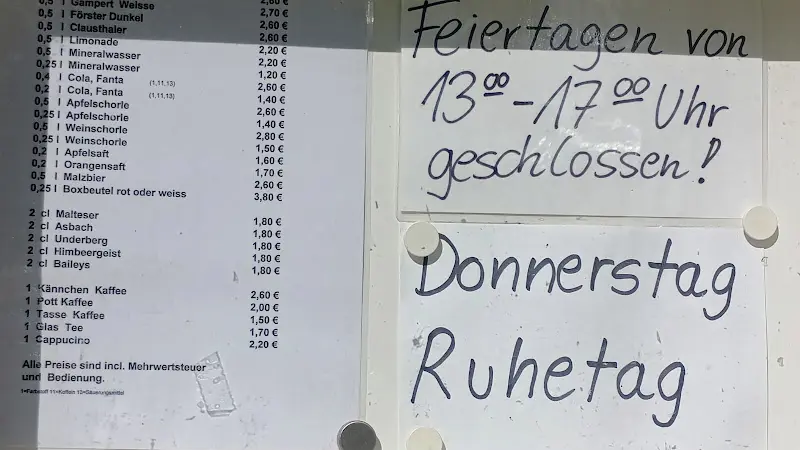 2,60 €
0,5 l Gampert Weisse 2,70 €
0,5 l Förster Dunkel 2,60 €
0,5 l Clausthaler 2,60 €
0,5 l Limonade 2,20 €
0,5 l Mineralwasser 2,20 €
0,25 l Mineralwasser 1,20 €
0,4 l Cola, Fanta (1,11,13) 2,60 €
0,2 l Cola, Fanta (1,11,13) 1,40 €
0,5 l Apfelschorle 2,60 €
0,25 l Apfelschorle 1,40 €
0,5 l Weinschorle 2,80 €
0,25 l Weinschorle 1,50 €
0,2 l Apfelsaft 1,60 €
0,2 l Orangensaft 1,70 €
0,5 l Malzbier 2,60 €
0,25 l Boxbeutel rot oder weiss 3,80 €
2 cl Malteser 1,80 €
2 cl Asbach 1,80 €
2 cl Underberg 1,80 €
2 cl Himbeergeist 1,80 €
2 cl Baileys 1,80 €
1 Kännchen Kaffee 2,60 €
1 Pott Kaffee 2,00 €
1 Tasse Kaffee 1,50 €
1 Glas Tee 1,70 €
1 Cappucino 2,20 €
Alle Preise sind incl. Mehrwertsteuer
und Bedienung.
Feiertagen von
13 00 - 17 00 Uhr
geschlossen!
Donnerstag
Ruhetag